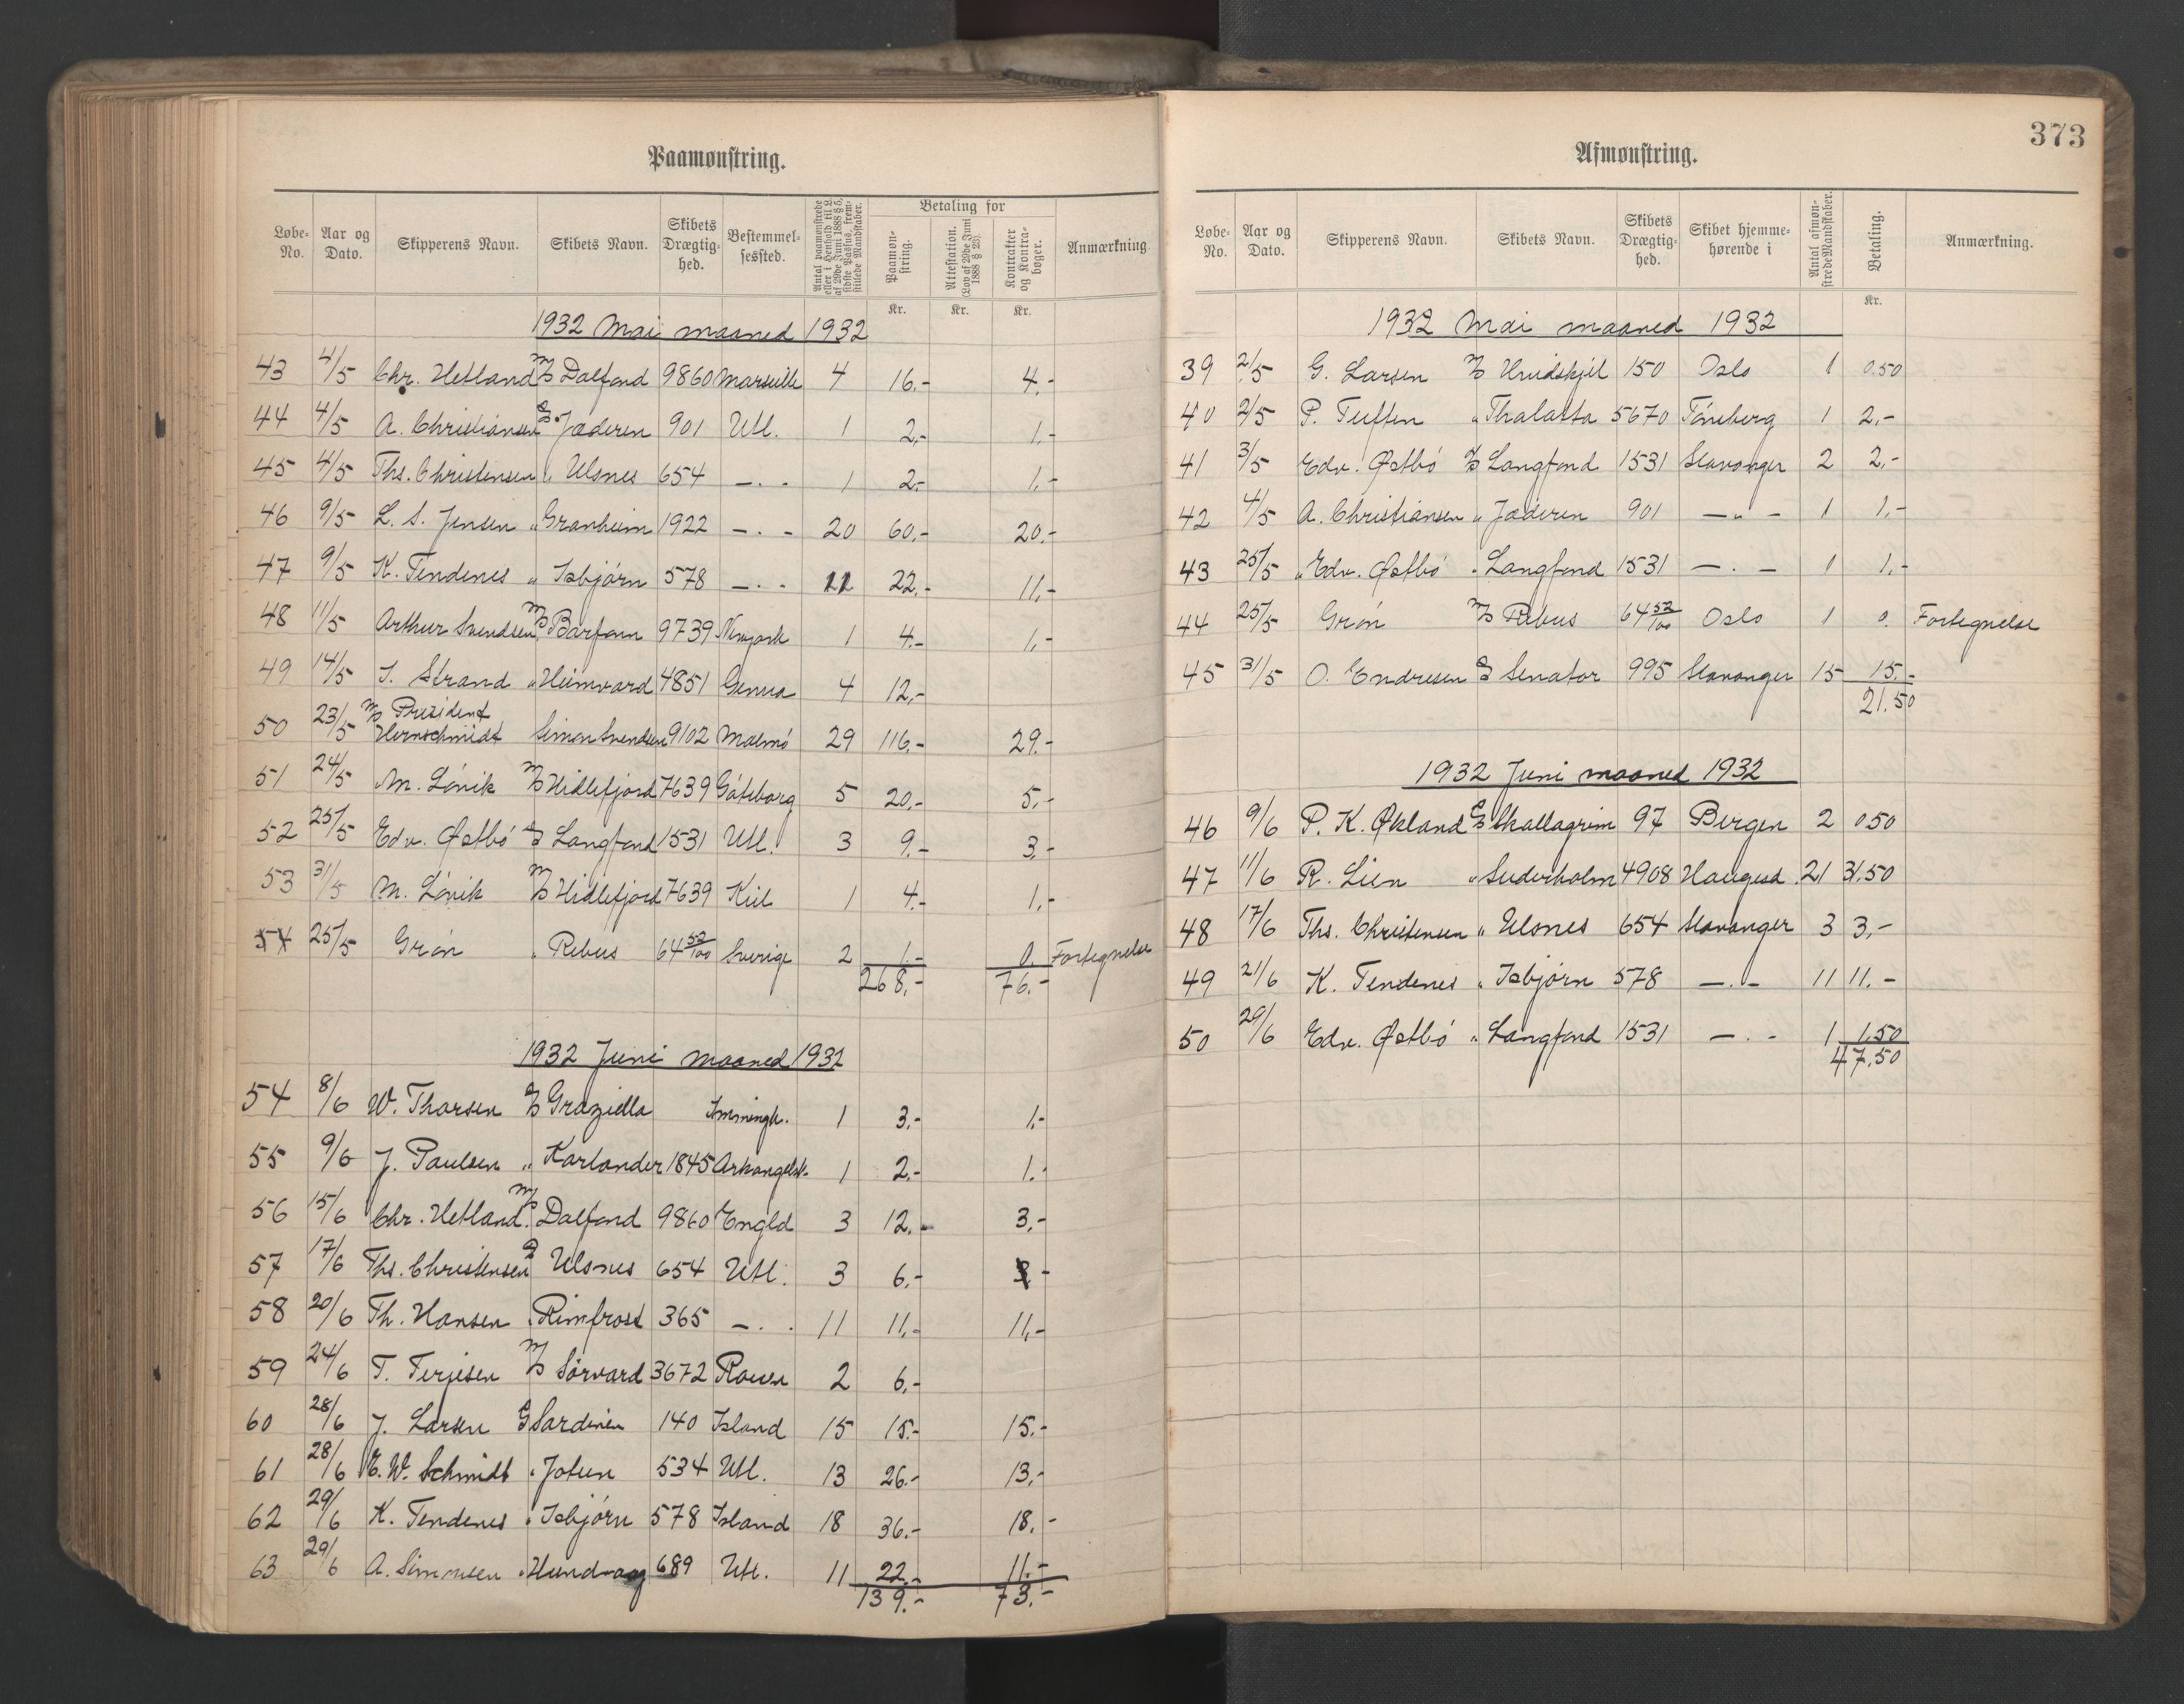 Paamønstring.
Løbe-No. Aar og Dato. Skipperens Navn. Skibets Navn. Skibets Drægtighed. Bestemmelsessted. Antal paamønstrede eller i Henhold til L. af 29de Juni 1888 § 5, sidste Passus, fremstillede Mandskaber. Betaling for Paamønstring. Attestation. (Lov af 29de Juni 1888 § 23). Kontrakter og Kontrabøger. Anmærkning
Kr. Kr. Kr.
1932 Mai maaned 1932
43 4/5 Chr. Hetland M/S Dalfond 9860 Marseille 4 16.- 4.-
44 4/5 A. Christiansen D/S Jæderen 901 Utl. 1 2.- 1.-
45 4/5 Ths. Christensen " Ulsnes 654 -"- 1 2.- 1.-
46 9/5 L. S. Jensen " Granheim 1922 -"- 20 60.- 20.-
47 9/5 K. Tendenes " Isbjørn 578 -"- 11 22.- 11.-
48 11/5 Arthur Svendsen M/S Barfonn 9739 Newyork 1 4.- 1.-
49 14/5 J. Strand " Heimvard 4851 Genua 4 12.-
50 23/5 M/S President Hornschmidt Simon Svendsen 9102 Malmø 29 116.- 29.-
51 24/5 M. Lønik M/S Hidlefjord 7639 Gøteborg 5 20.- 5.-
52 25/5 Edv. Østbø D/S Langfond 1531 Utl. 3 9.- 3.-
53 31/5 M. Lønik M/S Hidlefjord 7639 Kiel 1 4.- 1.-
54 25/5 Grøn " Rebus 64 52/100 Sverige 2 1.- 0. Fortegnelse
268.- 76.-
1932 Juni maaned 1932
54 8/6 W. Thorsen D/S Graziella Immingh. 1 3.- 1.-
55 9/6 J. Paulsen " Karlander 1845 Arkangelsk. 1 2.- 1.-
56 15/6 Chr. Hetland M/S Dalfond 9860 Engld 3 12.- 3.-
57 17/6 Ths. Christensen D/S Ulsnes 654 Utl. 3 6.- -
58 20/6 Th. Hansen " Rimfrost 365 -"- 11 11.- 11.-
59 24/6 T. Terjesen M/S Sørvard 3672 Rouen 2 6.-
60 28/6 J. Larsen D/S Sardinen 140 Island 15 15.- 15.-
61 28/6 E. W. Schmidt " Jotun 534 Utl. 13 26.- 13.-
62 29/6 K. Tendenes " Isbjørn 578 Island 18 36.- 18.-
63 29/6 A. Simonsen " Hundvaag 689 Utl. 11 22.- 11.-
139.- 73.-
373
Afmønstring.
Løbe-No. Aar og Dato. Skipperens Navn. Skibets Navn. Skibets Drægtighed. Skibet hjemmehørende i Antal afmønstrede Mandskaber. Betaling. Anmærkning.
Kr.
1932 Mai maaned 1932
39 2/5 G. Larsen M/S Hvidskjel 150 Oslo 1 0.50
40 2/5 P. Tuften " Thalatta 5670 Tønsberg 1 2.-
41 3/5 Edv. Østbø D/S Langfond 1531 Stavanger 2 2.-
42 4/5 A. Christiansen " Jæderen 901 -"- 1 1.-
43 25/5 Edv. Østbø " Langfond 1531 -"- 1 1.-
44 25/5 Grøn M/S Rebus 64 52/100 Oslo 1 0. Fortegnelse
45 31/5 O. Endresen D/S Senator 995 Stavanger 15 15.-
21.50
1932 Juni maaned 1932
46 9/6 P. K. Økland D/S Skallagrim 97 Bergen 2 0.50
47 11/6 R. Lien " Suderholm 4908 Haugesd. 21 31.50
48 17/6 Ths. Christensen " Ulsnes 654 Stavanger 3 3.-
49 21/6 K. Tendenes " Isbjørn 578 -"- 11 11.-
50 29/6 Edv. Østbø " Langfond 1531 -"- 1 1.50
47.50